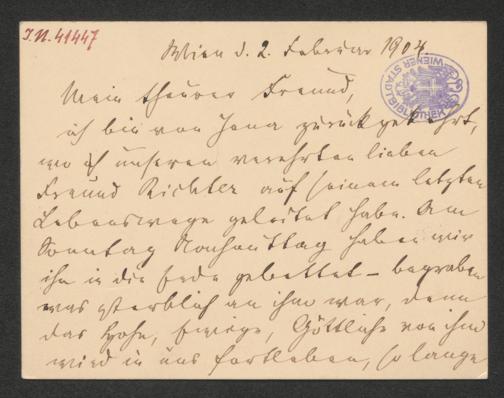 J.N. 41447
Wien d. 2. Februar 1904.
WIENER STADTBIBLIOTHEK
Mein theurer Freund,
ich bin von Jena zurückgekehrt,
wo ich unseren verehrten lieben
Freund Richter auf seinem letzten
Lebenswege geleitet habe. Am
Sonntag Nachmittag haben wir
ihn in die Erde gebettet – begraben
was sterblich an ihm war, denn
das Hohe, Ewige, Göttliche von ihm
wird in uns fortleben, so lange